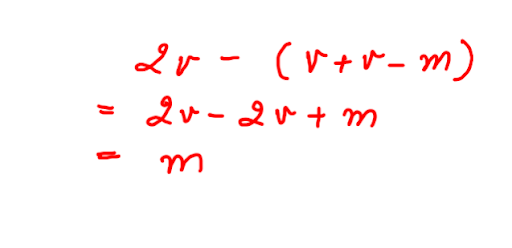 2v - (v+v-m)
= 2v - 2v + m
= m